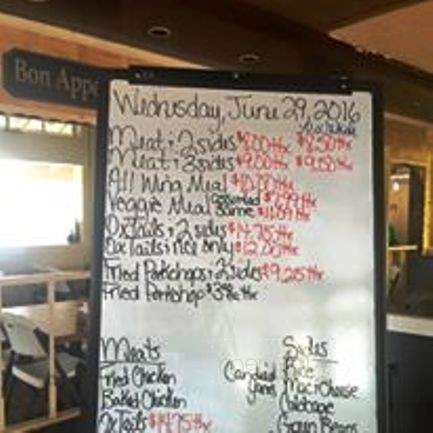 Bon Appé
Wednesday, June 29, 2016
Meat + 2 sides $8.00 + tx $8.50 + tx
Meat + 3 sides $9.00 + tx $9.50 + tx
All Wing Meal $10.00 + tx
Veggie Meal
OxTails + 2 sides $14.75 + tx
OxTails + rice only $12.00 + tx
Fried Porkchops + 2 sides $9.25 + tx
Fried Porkchop
Meats
Sides
Fried Chicken
Baked Chicken
OxTails $14.75 + tx
Rice
Candied Yams
Mac n Cheese
Cabbage
Green Beans